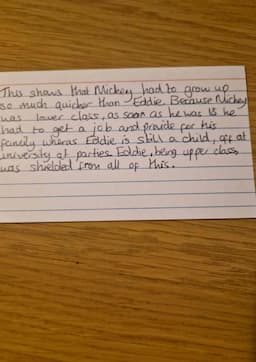 This shows that Mickey had to grow up
so much quicker than Eddie. Because Mickey
was lower class, as soon as he was 18 he
had to get a job and provide for his
family wheras Eddie is still a child, off at
university at parties. Eddie, being upper class,
was shielded from all of this.